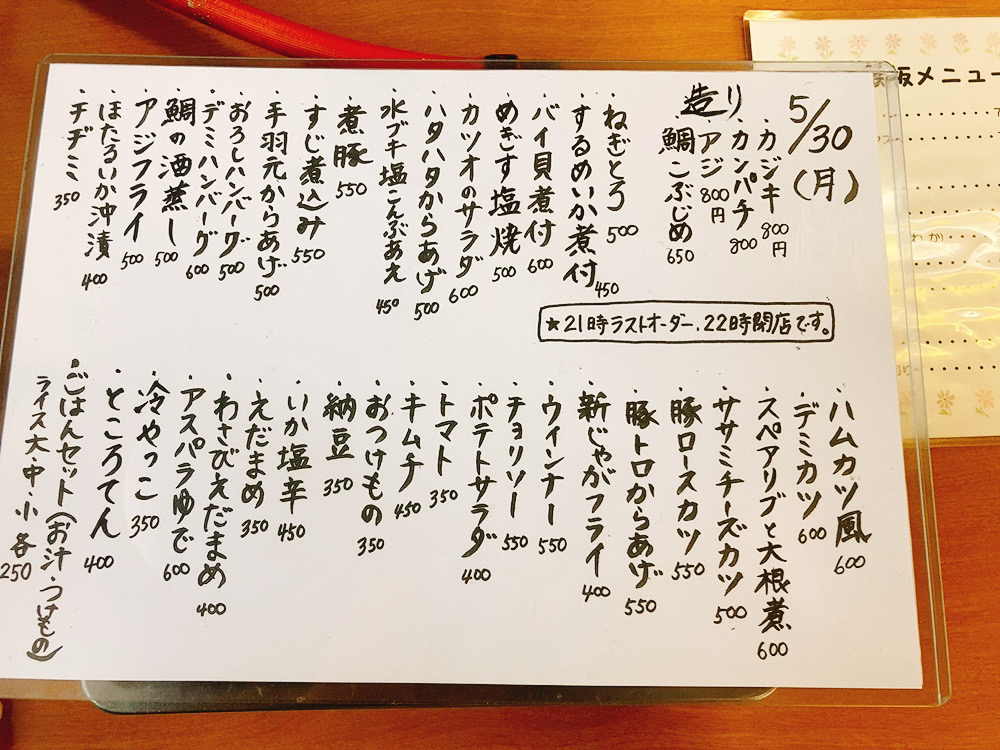 5/30(月)
造り
カジキ 800円
カンパチ 800
アジ 800円
鯛こぶじめ 650
・ねぎとろ 500
・するめいか煮付 450
・バイ貝煮付 600
・めぎす塩焼 500
・カツオのサラダ 600
・ハタハタからあげ 500
・水ブキ塩こんぶあえ 450
・煮豚 550
・すじ煮込み 550
・手羽元からあげ 500
・おろしハンバーグ 500
・デミハンバーグ 600
・鯛の酒蒸し 500
・アジフライ 500
・ほたるいか沖漬 400
・チヂミ 350
★21時ラストオーダー、22時閉店です。
・ハムカツ風 600
・デミカツ 600
・スペアリブと大根煮 600
・ササミチーズカツ 500
・豚ロースカツ 550
・豚トロからあげ 550
・新じゃがフライ 400
・ウィンナー 550
・チョリソー 550
・ポテトサラダ 400
・トマト 350
・キムチ 450
・おつけもの 350
・納豆 350
・いか塩辛 450
・えだまめ 350
・わさびえだまめ 400
・アスパラゆで 600
・冷やっこ 350
・ところてん 400
・ごはんセット(お汁・つけもの)
ライス大・中・小 各250
板メニュー